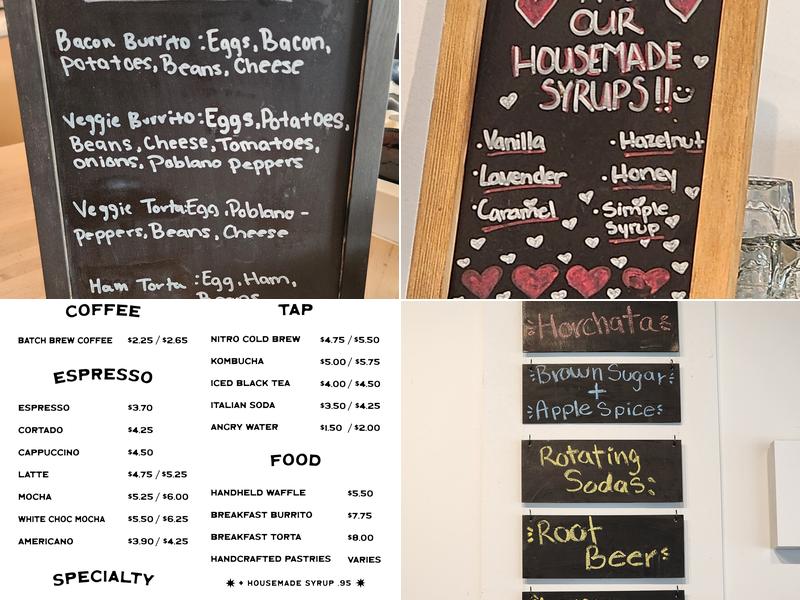 Bacon Burrito : Eggs, Bacon,
Potatoes, Beans, Cheese
Veggie Burrito: Eggs, Potatoes,
Beans, Cheese, Tomatoes,
onions, Poblano Peppers
Veggie Torta: Egg, Poblano -
Peppers, Beans, Cheese
Ham Torta : Egg, Ham,
Beans
OUR
HOUSEMADE
SYRUPS!!
· Vanilla
· Hazelnut
· Lavender
· Honey
· Caramel
· Simple
Syrup
COFFEE
BATCH BREW COFFEE $2.25 / $2.65
ESPRESSO
ESPRESSO $3.70
CORTADO $4.25
CAPPUCCINO $4.50
LATTE $4.75 / $5.25
MOCHA $5.25 / $6.00
WHITE CHOC MOCHA $5.50 / $6.25
AMERICANO $3.90 / $4.25
SPECIALTY
TAP
NITRO COLD BREW $4.75 / $5.50
KOMBUCHA $5.00 / $5.75
ICED BLACK TEA $4.00 / $4.50
ITALIAN SODA $3.50 / $4.25
ANGRY WATER $1.50 / $2.00
FOOD
HANDHELD WAFFLE $5.50
BREAKFAST BURRITO $7.75
BREAKFAST TORTA $8.00
HANDCRAFTED PASTRIES VARIES
+ HOUSEMADE SYRUP .95
Horchata
Brown Sugar
+
Apple Spice
Rotating
Sodas:
Root
Beer